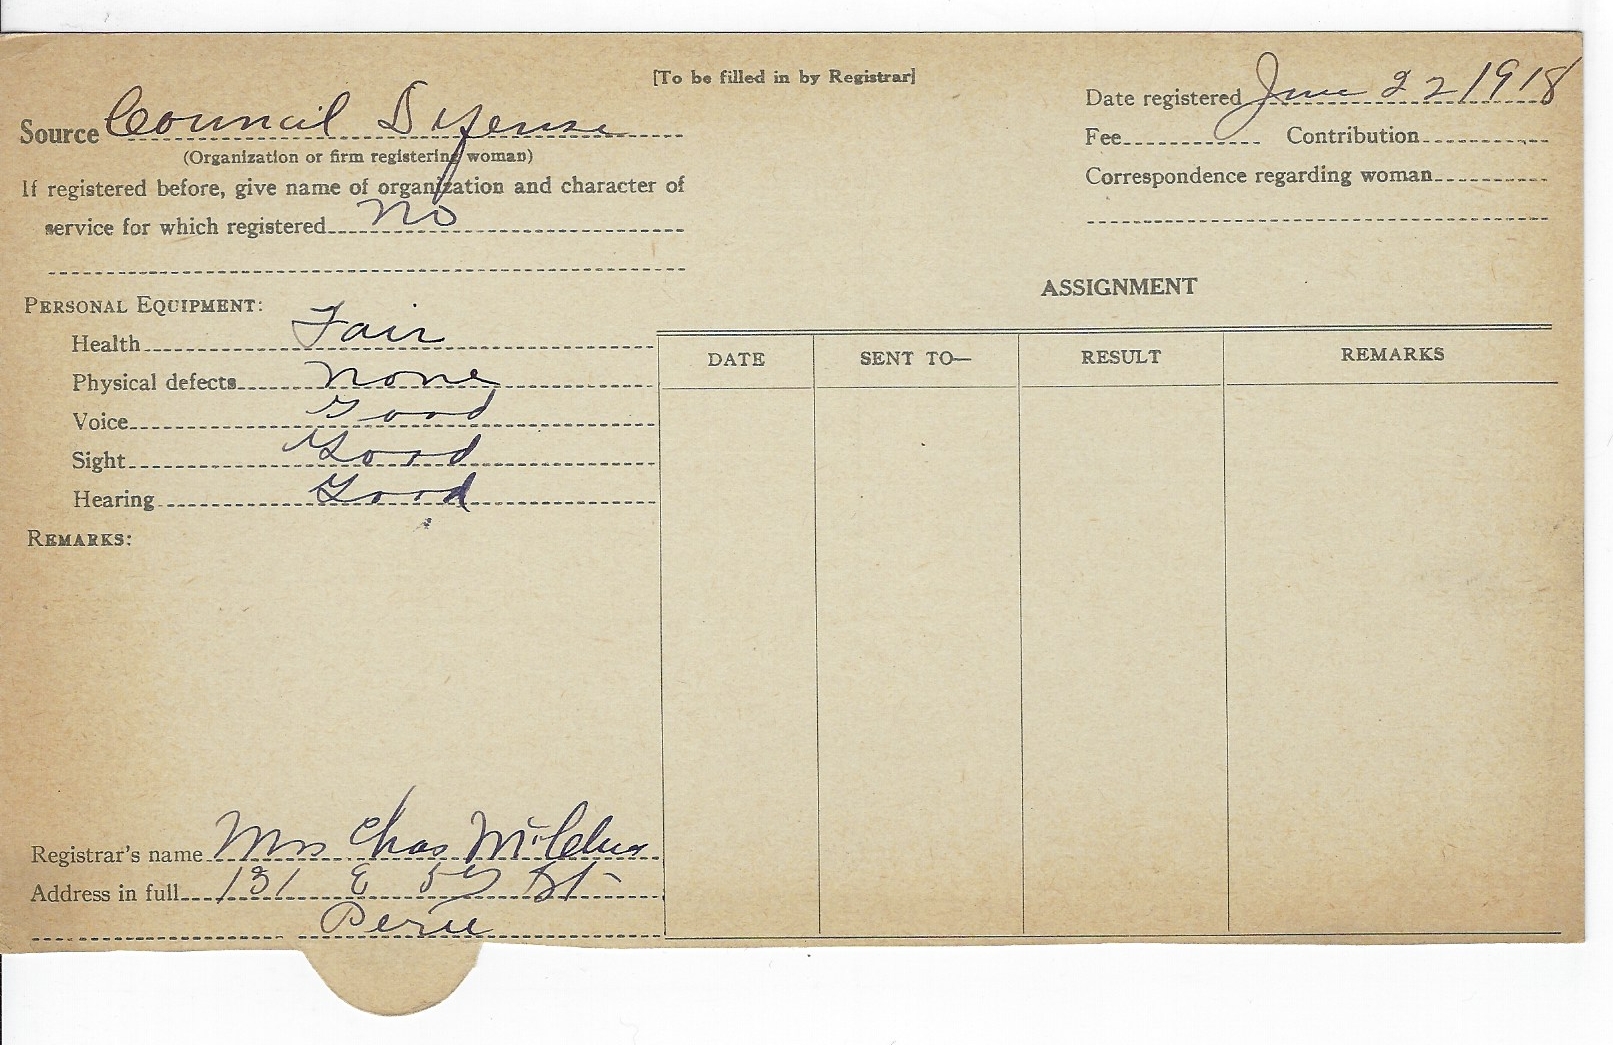 [To be filled in by Registrar]
Date registered June 22 1918
Source Council Defense
Fee Contribution
(Organization or firm registering woman)
Correspondence regarding woman
If registered before, give name of organization and character of
service for which registered No
ASSIGNMENT
PERSONAL EQUIPMENT:
Health Fair
Physical defects None
Voice Good
Sight Good
Hearing Good
DATE SENT TO— RESULT REMARKS
REMARKS:
Registrar's name Mrs Chas
Address in full 131 E St
Peru